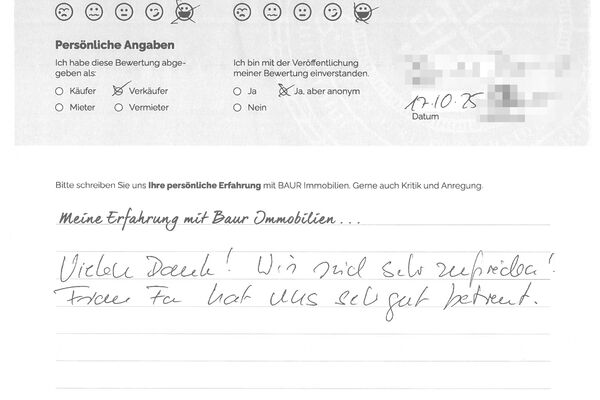 Persönliche Angaben
Ich habe diese Bewertung abge-
geben als:
Käufer Verkäufer
Mieter Vermieter
Ich bin mit der Veröffentlichung
meiner Bewertung einverstanden.
Ja Ja, aber anonym
Nein
17.10.25
Datum
Bitte schreiben Sie uns Ihre persönliche Erfahrung mit BAUR Immobilien. Gerne auch Kritik und Anregung.
Meine Erfahrung mit Baur Immobilien...
Vielen Dank! Wir sind sehr zufrieden!
Frau Fa hat uns sehr gut betreut.